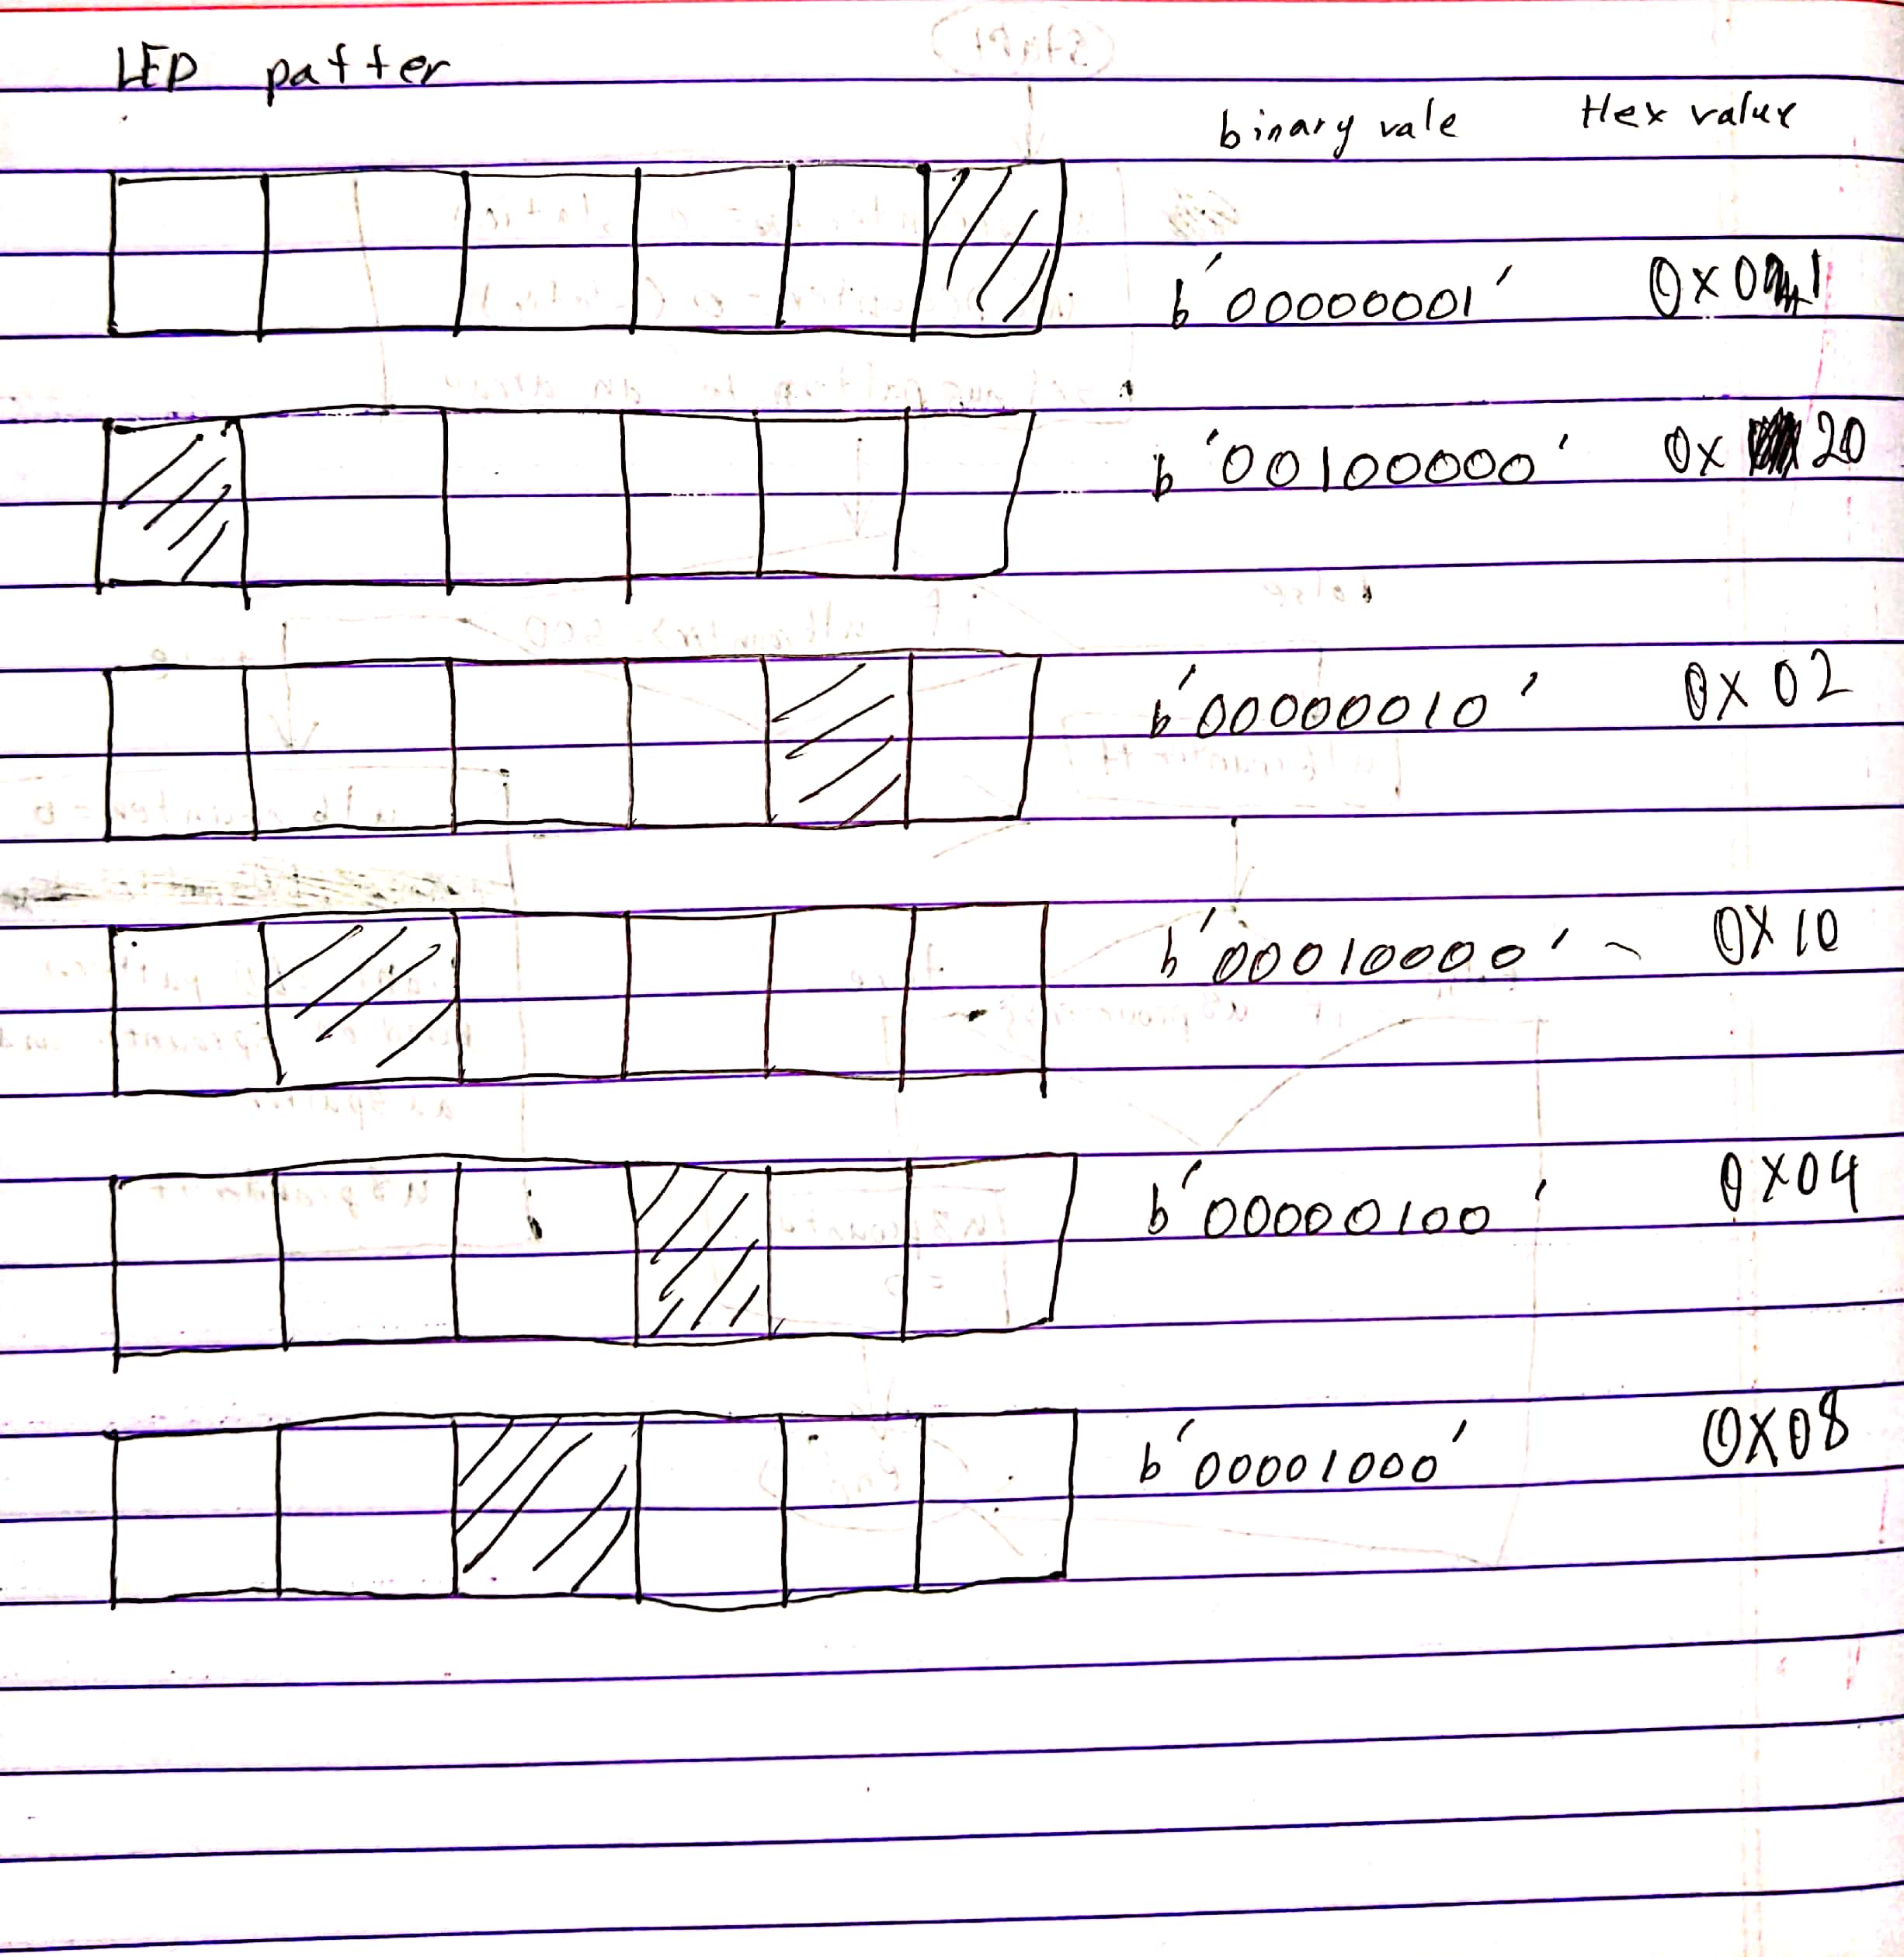 LED patter
binary vale Hex value
b'00000001' 0x01
b'00100000' 0x 20
b'00000010' 0x02
b'00010000' 0x10
b'00000100' 0x04
b'00001000' 0x08